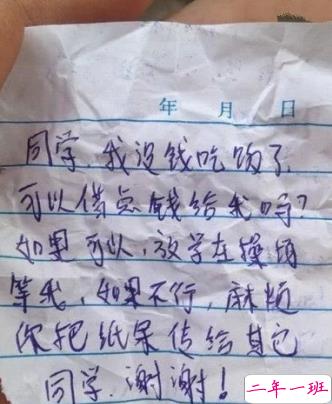 年 月 日
同学,我没钱吃饭了,
可以借点钱给我吗?
如果可以,放学在操场
等我,如果不行,麻烦
你把纸条传给其它
同学,谢谢!
二年一班